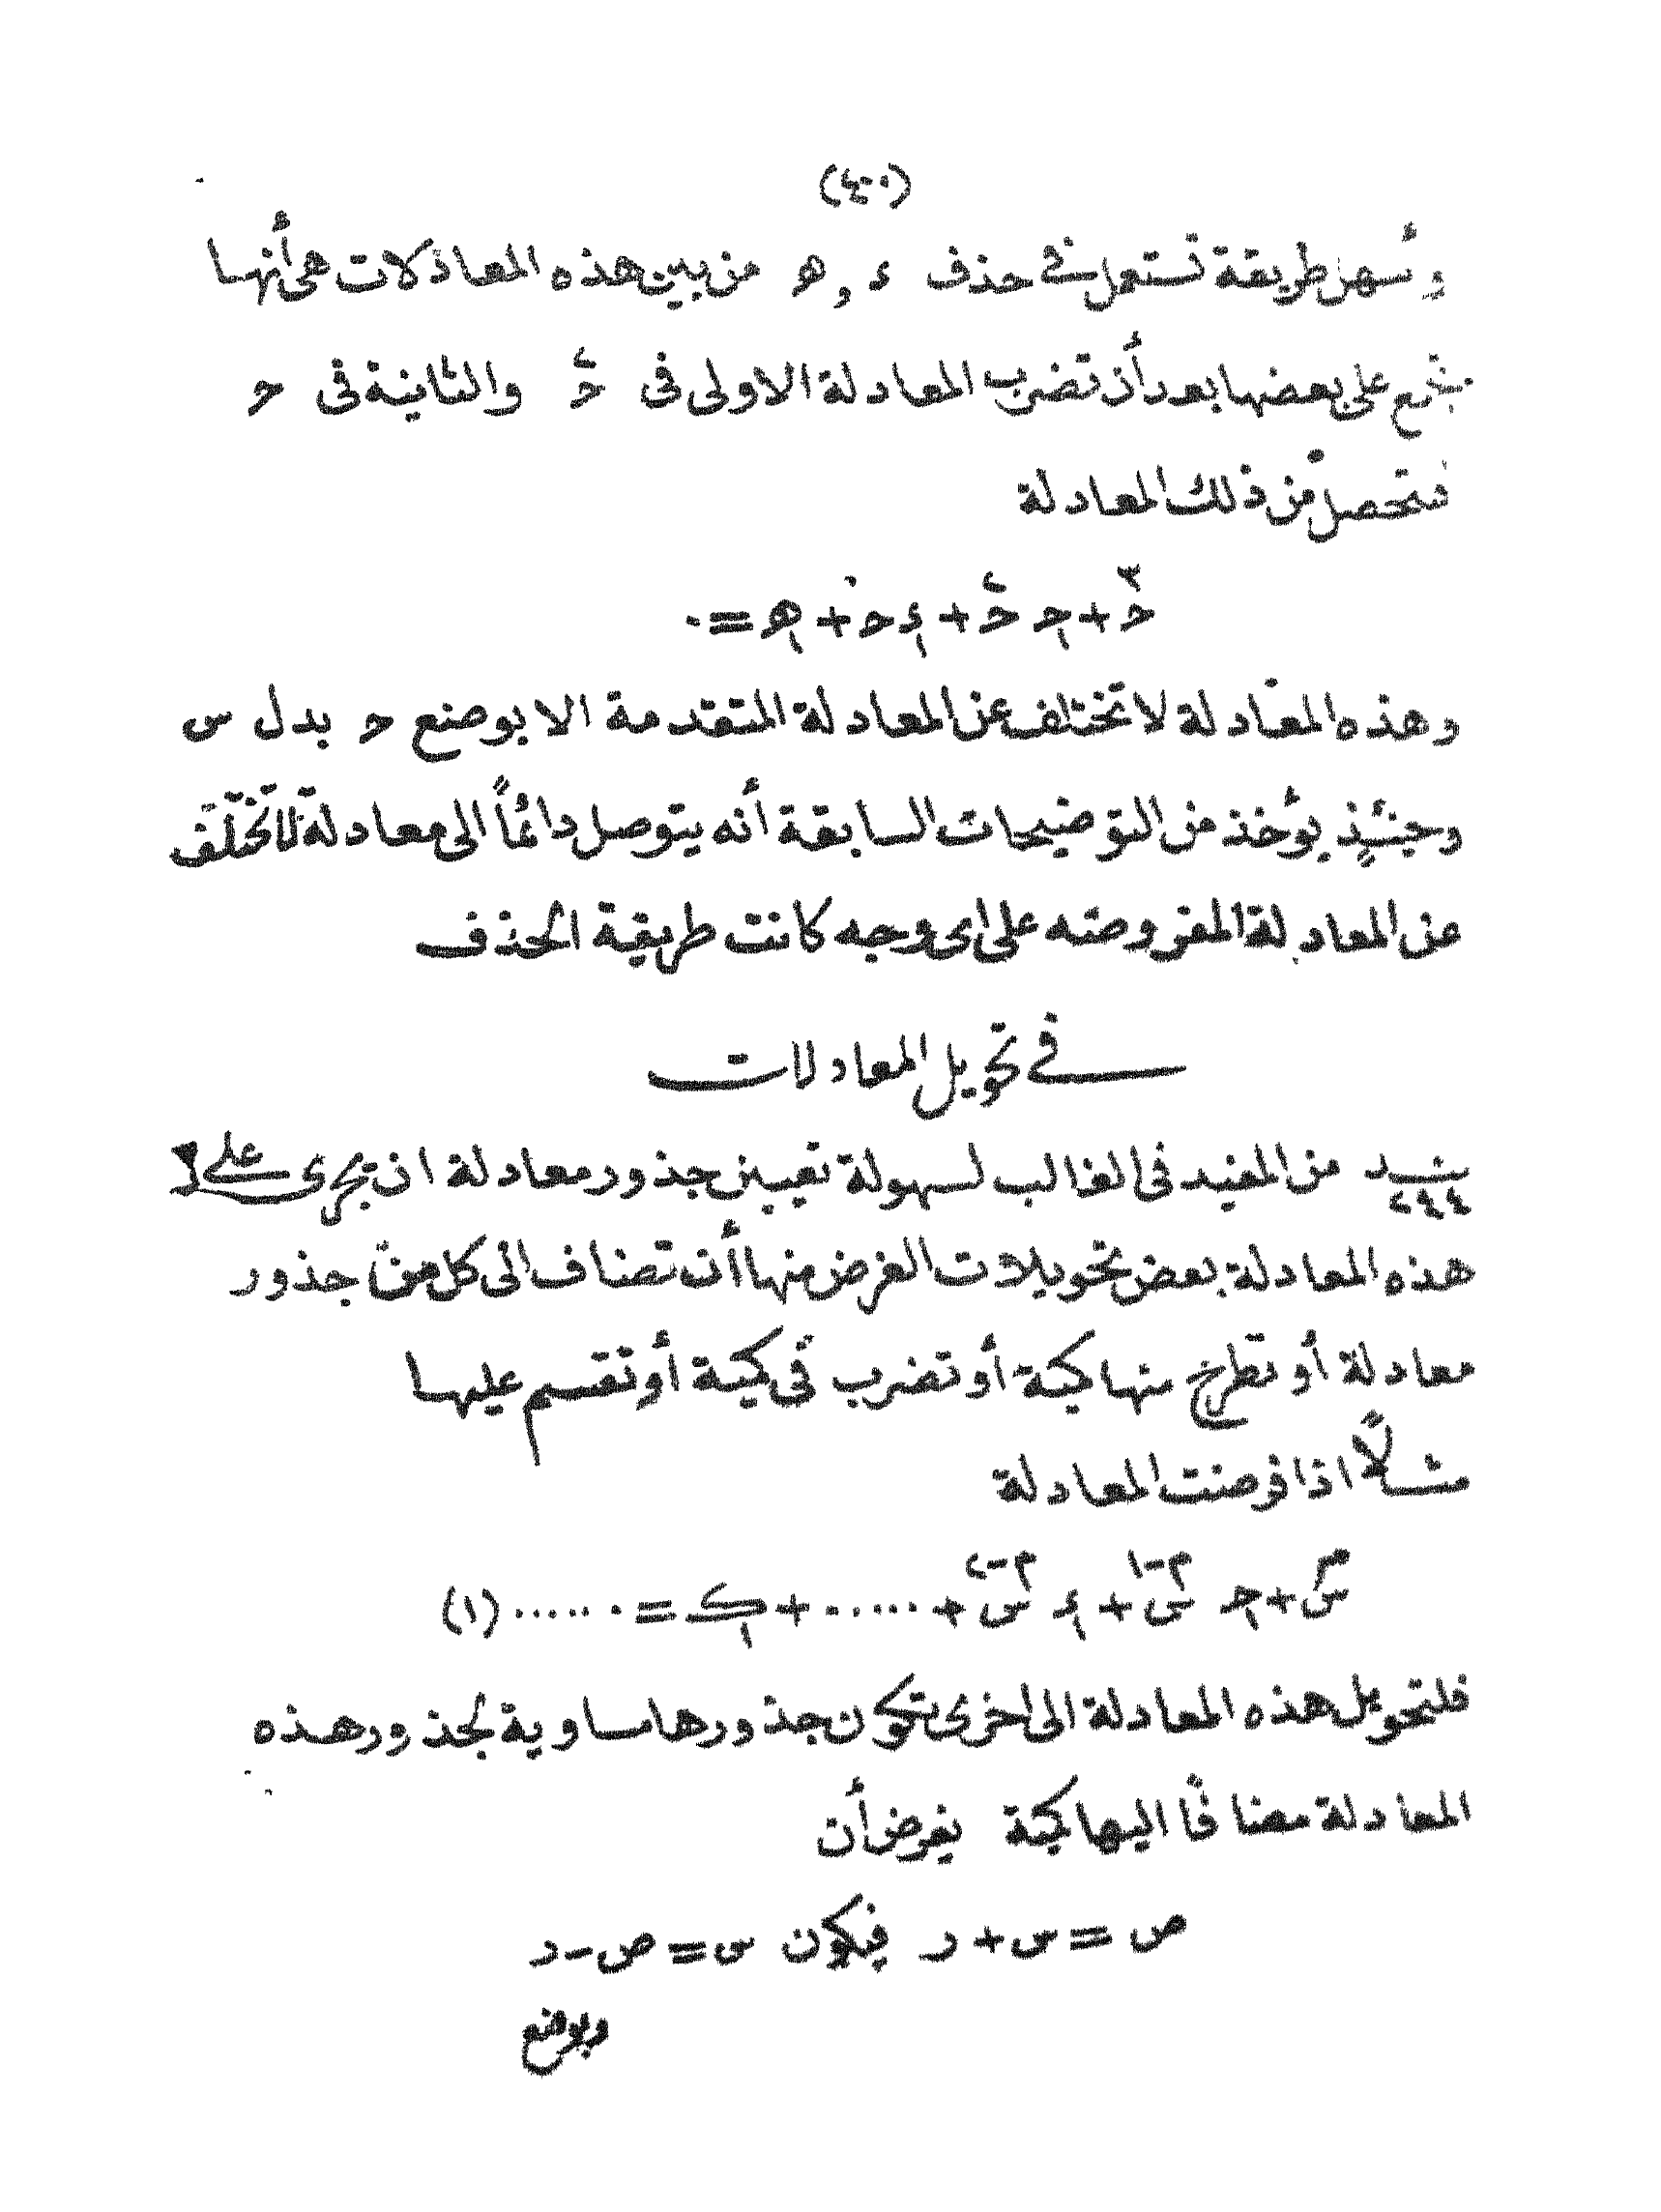 (٤٠٠)
وأسهل طريقة تستعمل في حذف ء , ه من بين هذه المعادلات هى أنها
تجمع على بعضها بعد أن تضرب المعادلة الاولى فى حـ٢ والثانية فى حـ
فتحصل من ذلك المعادلة
حـ٣ + حـ١ حـ٢ + ء١ حـ + ه١ = ٠
وهذه المعادلة لا تختلف عن المعادلة المتقدمة الا بوضع حـ بدل س
وحينئذٍ يؤخذ من التوضيحات السابقة أنه يتوصل دائماً الى معادلة لا تختلف
عن المعادلة المفروضه على اى وجه كانت طريقة الحذف
في تحويل المعادلات
بند ٢٩٤ من المفيد فى الغالب لسهولة تعيين جذور معادلة ان تجرى على
هذه المعادلة بعض تحويلات الغرض منها أن تضاف الى كل من جذور
معادلة أو تطرح منها كمية أو تضرب فى كمية أو تقسم عليها
مثلاً اذا فرضت المعادلة
س^م + حـ١ س^م-١ + ء١ س^م-٢ + ...... + ك١ = ٠ ...... (١)
فلتحويل هذه المعادلة الى اخرى تكون جذورها مساوية لجذور هذه
المعادلة مضافًا اليها كمية يفرض أن
ص = س + ر فيكون س = ص - ر
وبوضع